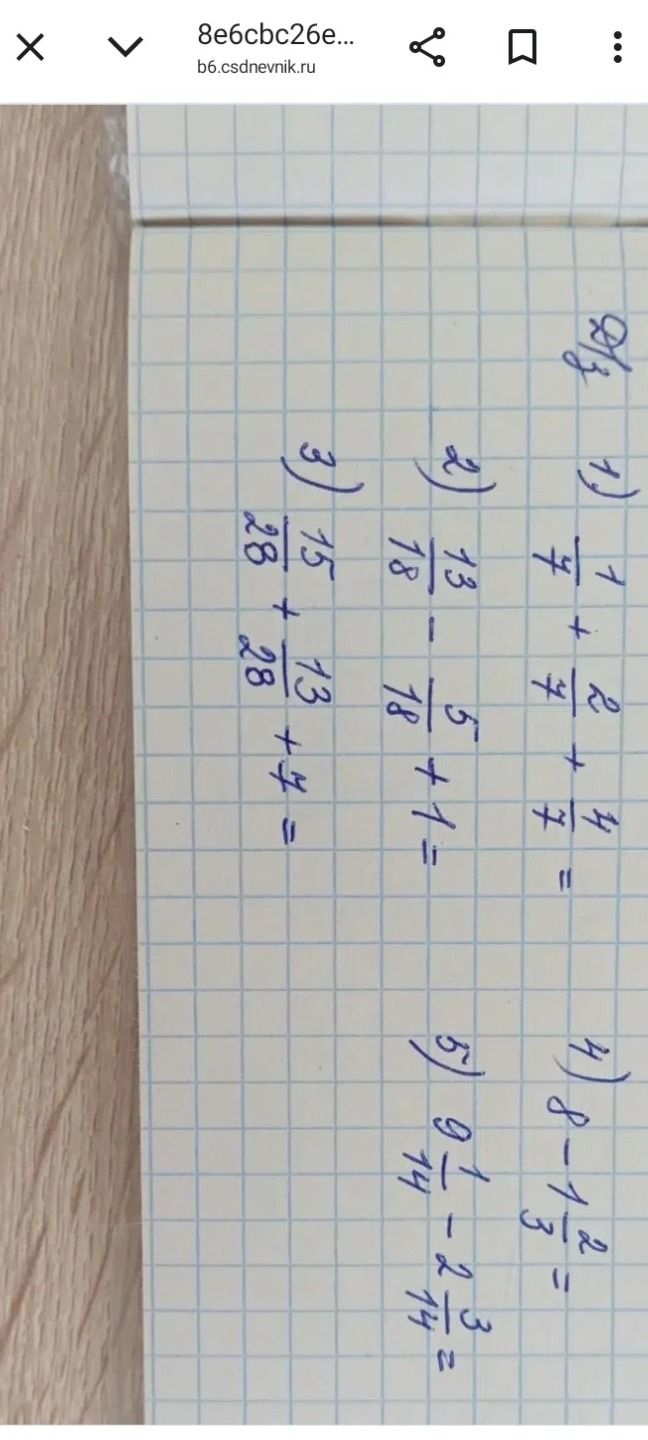 8e6cbc26e...
b6.csdnevnik.ru
Д/з 1) 1/7 + 2/7 + 4/7 =
2) 13/18 - 5/18 + 1 =
3) 15/28 + 13/28 + 7 =
4) 8 - 1 2/3 =
5) 9 1/14 - 2 3/14 =